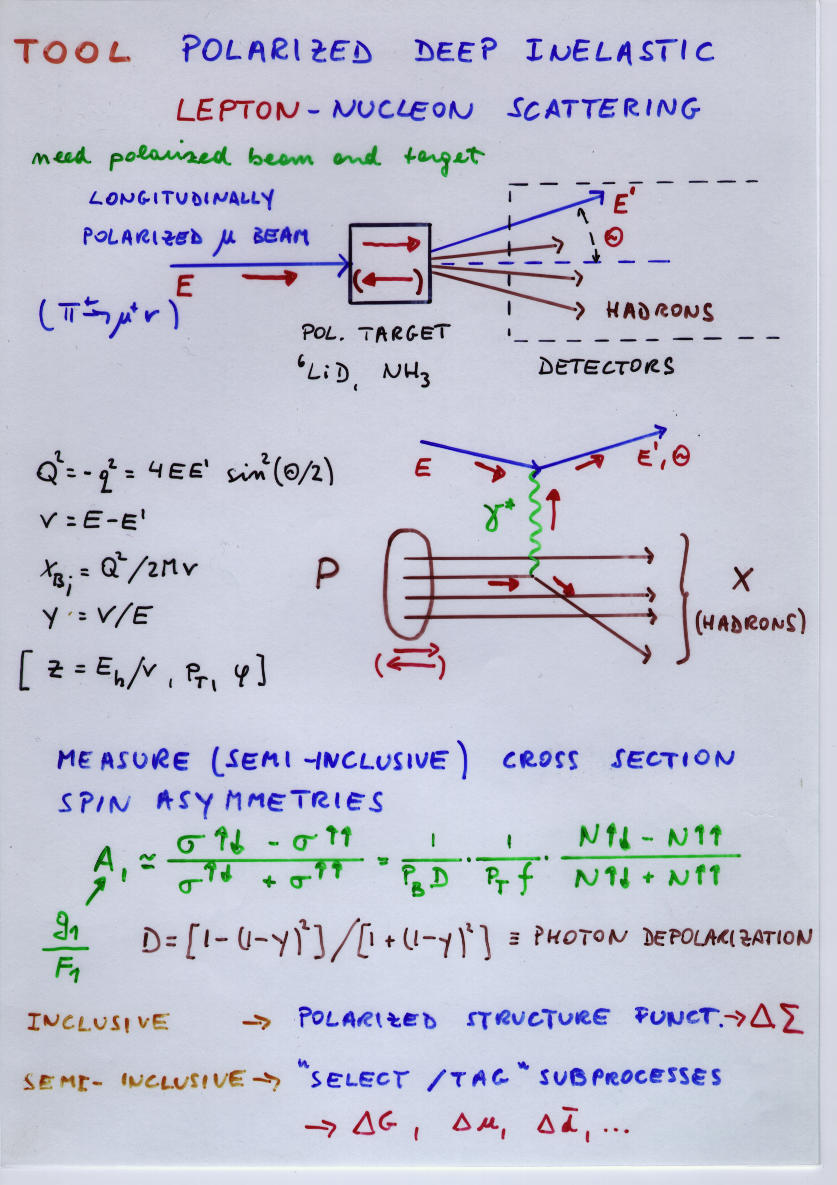 TOOL POLARIZED DEEP INELASTIC
LEPTON-NUCLEON SCATTERING
need polarized beam and target
LONGITUDINALLY
POLARIZED μ BEAM
E
(π⁺→μ⁺ν)
POL. TARGET
⁶LiD, NH₃
E'
Θ
HADRONS
DETECTORS
Q² = -q² = 4EE' sin²(Θ/2)
ν = E-E'
x_Bj = Q²/2Mν
y = ν/E
[z = E_h/ν, P_T, φ]
E
E', Θ
γ*
P
X
(HADRONS)
MEASURE (SEMI-INCLUSIVE) CROSS SECTION
SPIN ASYMMETRIES
A₁ ≃ (σ↑↓ - σ↑↑)/(σ↑↓ + σ↑↑) = 1/(P_B D) · 1/(P_T f) · (N↑↓ - N↑↑)/(N↑↓ + N↑↑)
g₁/F₁
D = [1-(1-y)²]/[1+(1-y)²] ≡ PHOTON DEPOLARIZATION
INCLUSIVE → POLARIZED STRUCTURE FUNCT. → ΔΣ
SEMI-INCLUSIVE → "SELECT/TAG" SUBPROCESSES
→ ΔG, Δu, Δd̄, ...